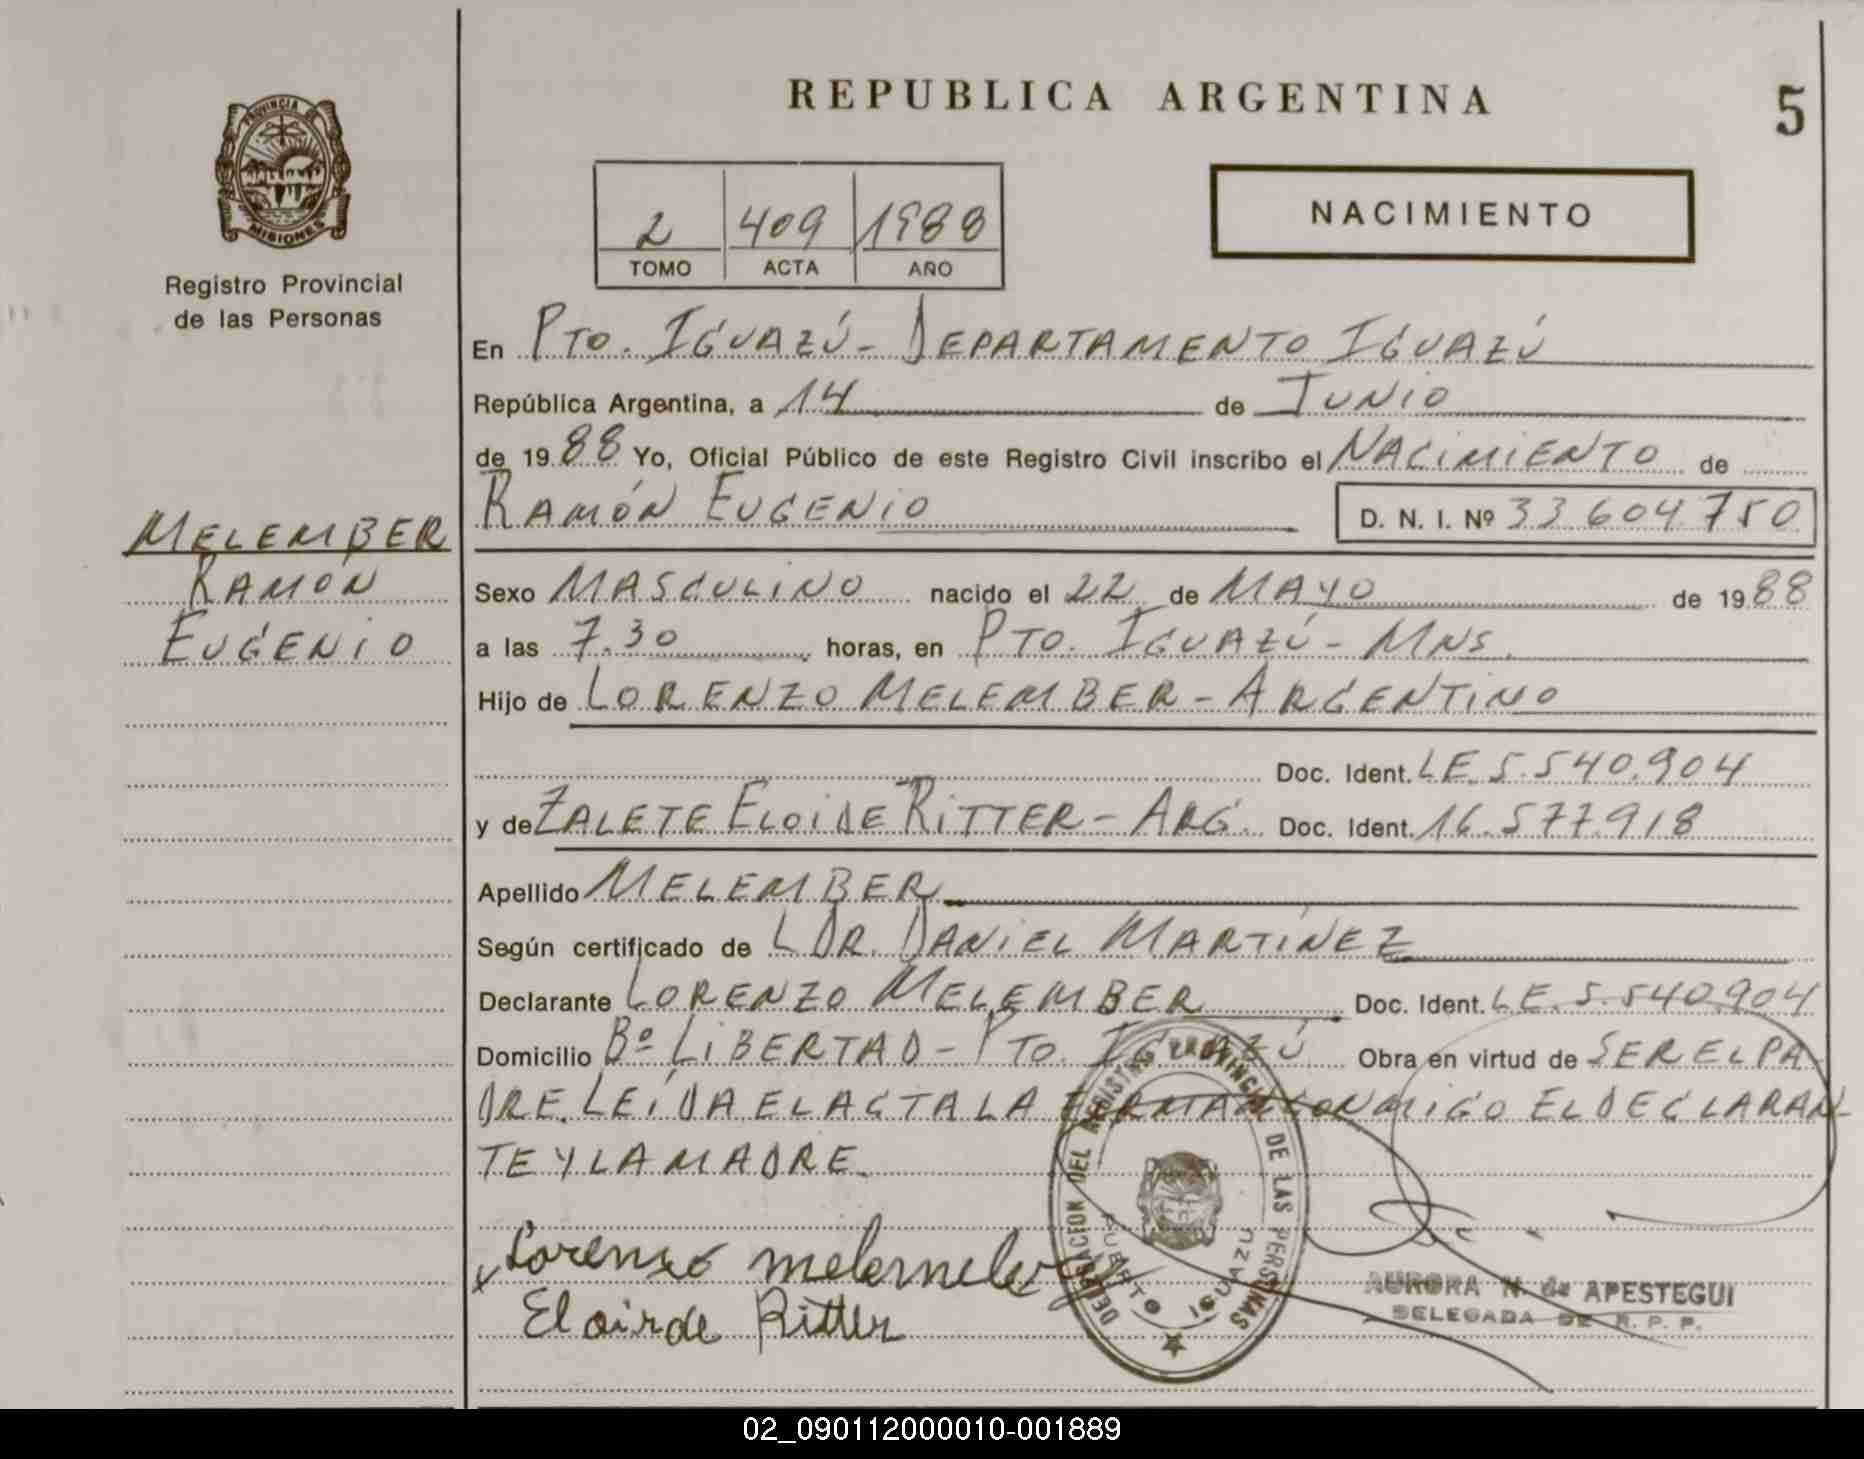 REPUBLICA ARGENTINA
5
PROVINCIA DE
MISIONES
Registro Provincial
de las Personas
2 409 1988
TOMO ACTA AÑO
NACIMIENTO
En PTO. IGUAZÚ - DEPARTAMENTO IGUAZÚ
República Argentina, a 14 de JUNIO
de 1988 Yo, Oficial Público de este Registro Civil inscribo el NACIMIENTO de
RAMÓN EUGENIO D. N. I. Nº 33604750
MELEMBER
RAMÓN
EUGENIO
Sexo MASCULINO nacido el 22 de MAYO de 1988
a las 7.30 horas, en PTO. IGUAZÚ - MNS.
Hijo de LORENZO MELEMBER - ARGENTINO
Doc. Ident. LE. 5.540.904
y de ZALETE ELOIDE RITTER - ARG. Doc. Ident. 16.577.918
Apellido MELEMBER
Según certificado de L DR. DANIEL MARTÍNEZ
Declarante LORENZO MELEMBER Doc. Ident. LE. 5.540.904
Domicilio Bº LIBERTAD - PTO. IGUAZÚ Obra en virtud de SER EL PA
DRE. LEÍDA EL ACTA LA FIRMAN CONMIGO EL DECLARAN-
TE Y LA MADRE.
DELEGACION DEL REGISTRO PROVINCIAL DE LAS PERSONAS
PUERTO IGUAZU
Lorenzo
Eloirde Ritter
AURORA N. de APESTEGUI
DELEGADA DE R. P. P.
02_090112000010-001889